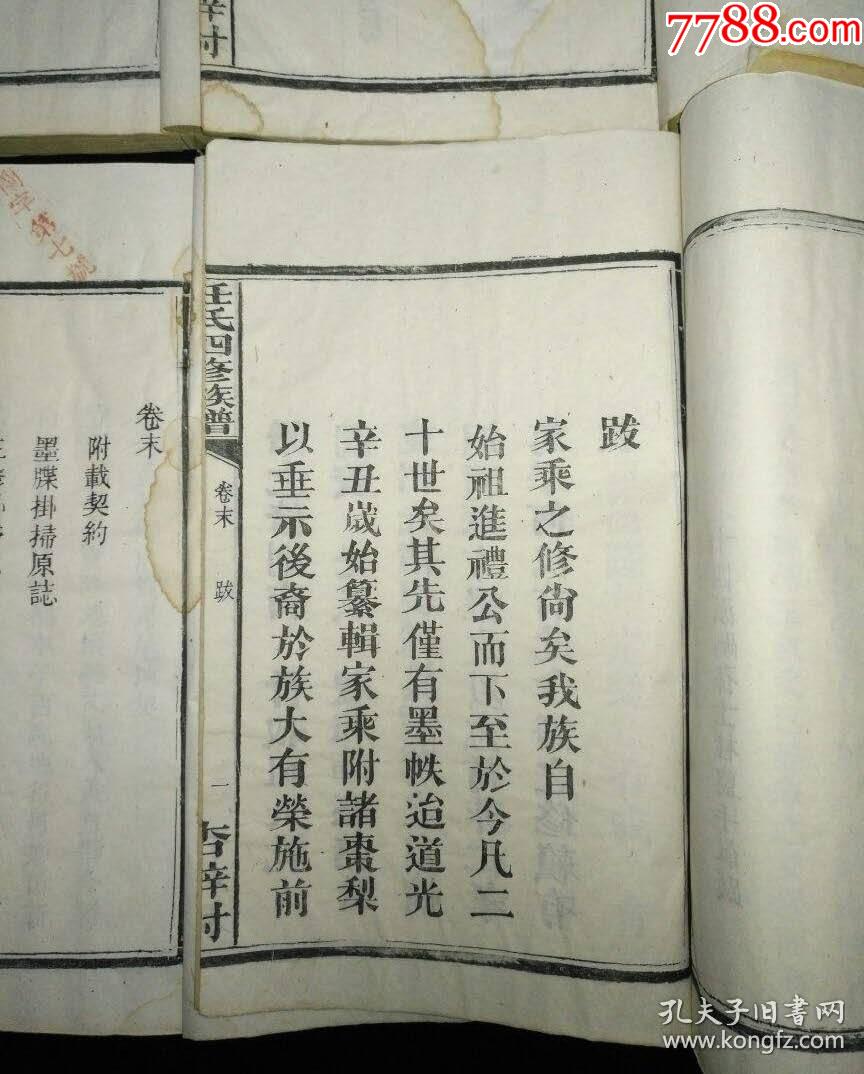 7788.com
跋
家乘之修尙矣我族自
始祖進禮公而下至於今凡二
十世矣其先僅有墨帙迨道光
辛丑歲始纂輯家乘附諸棗梨
以垂示後裔於族大有榮施前
任氏四修族譜
卷末
跋
一
杏梓村
第七號
卷末
附載契約
墨牒掛掃原誌
孔夫子旧书网
www.kongfz.com